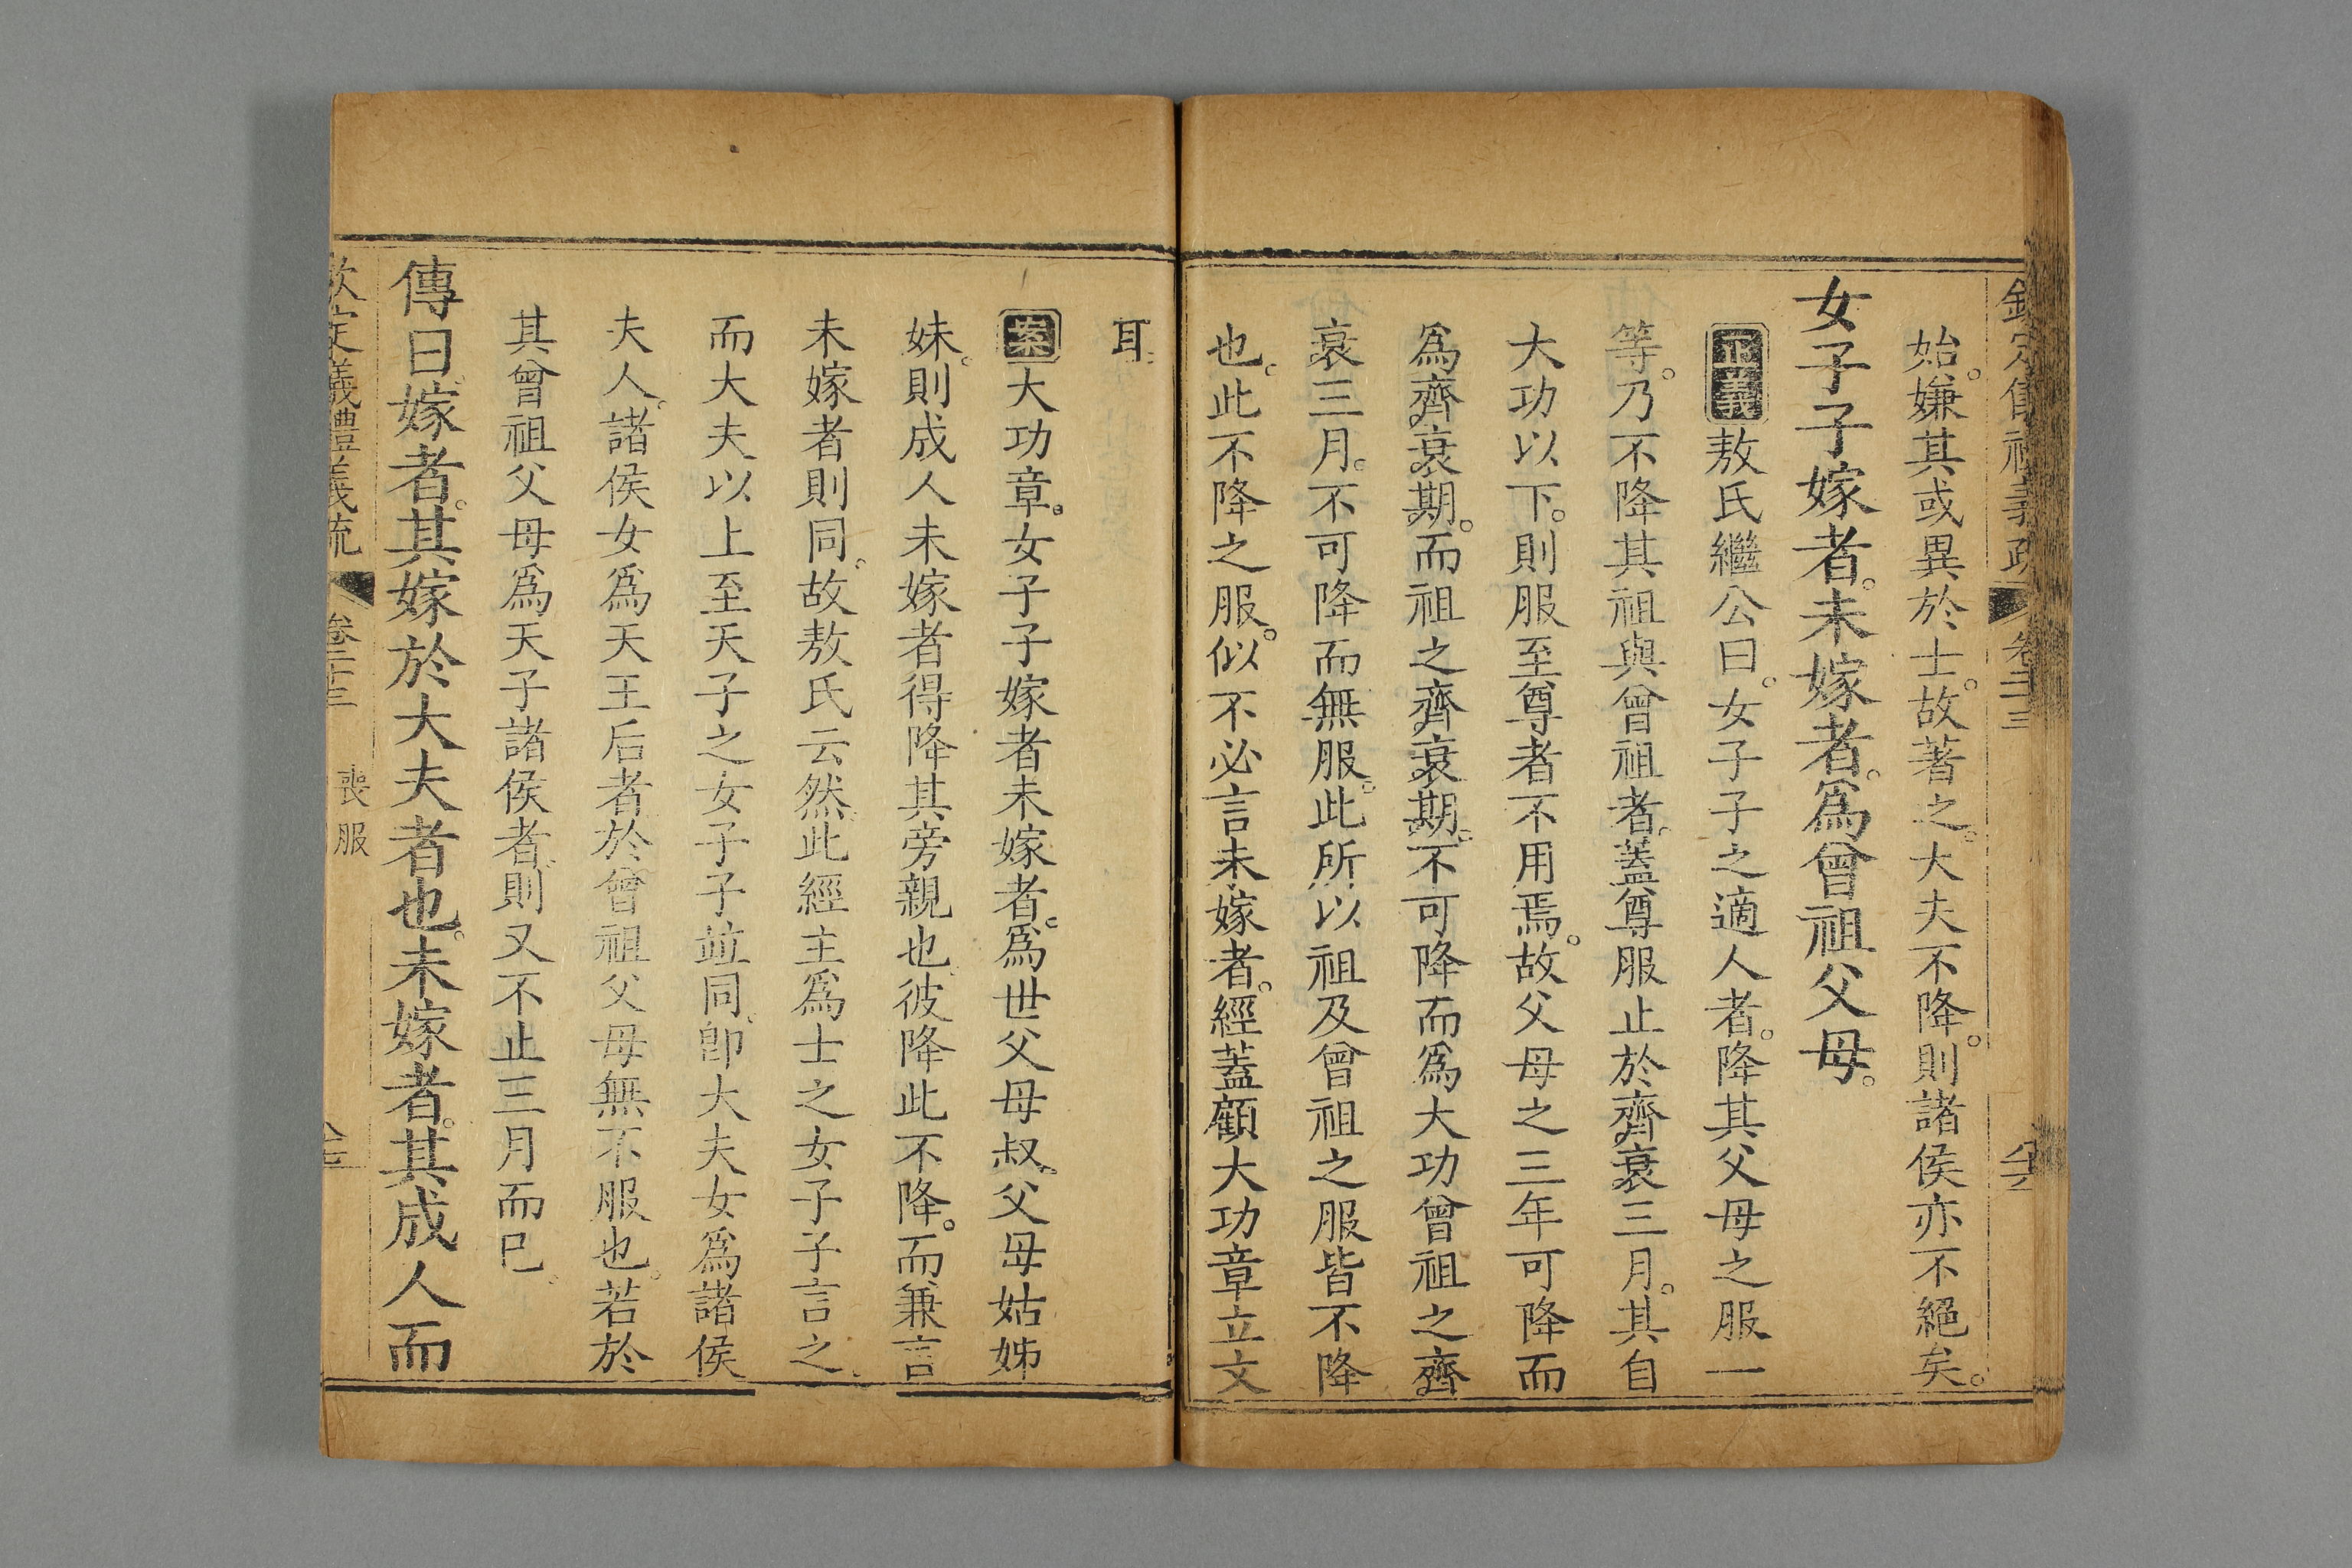 欽定儀禮義疏 卷二十三
始嫌其或異於士故著之大夫不降則諸侯亦不絕矣
女子子嫁者未嫁者爲曾祖父母
正義敖氏繼公曰女子子之適人者降其父母之服一
等乃不降其祖與曾祖者蓋尊服止於齊衰三月其自
大功以下則服至尊者不用焉故父母之三年可降而
爲齊衰期而祖之齊衰期不可降而爲大功曾祖之齊
衰三月不可降而無服此所以祖及曾祖之服皆不降
也此不降之服似不必言未嫁者經蓋顧大功章立文
耳
案大功章女子子嫁者未嫁者爲世父母叔父母姑姊
妹則成人未嫁者得降其旁親也彼降此不降而兼言
未嫁者則同故敖氏云然此經主爲士之女子子言之
而大夫以上至天子之女子子竝同卽大夫女爲諸侯
夫人諸侯女爲天王后者於曾祖父母無不服也若於
其曾祖父母爲天子諸侯者則又不止三月而已
傳曰嫁者其嫁於大夫者也未嫁者其成人而
欽定儀禮義疏 卷二十三 喪服